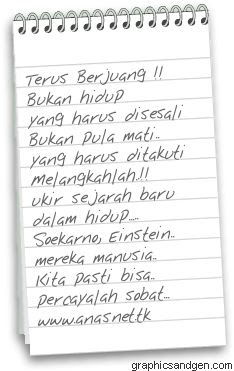 Terus Berjuang !!
Bukan hidup
yang harus disesali
Bukan pula mati..
yang harus ditakuti
melangkahlah.!!
ukir sejarah baru
dalam hidup.....
Soekarno, Einstein..
mereka manusia..
Kita pasti bisa..
percayalah sobat...
www.anasnet.tk
graphicsandgen.com